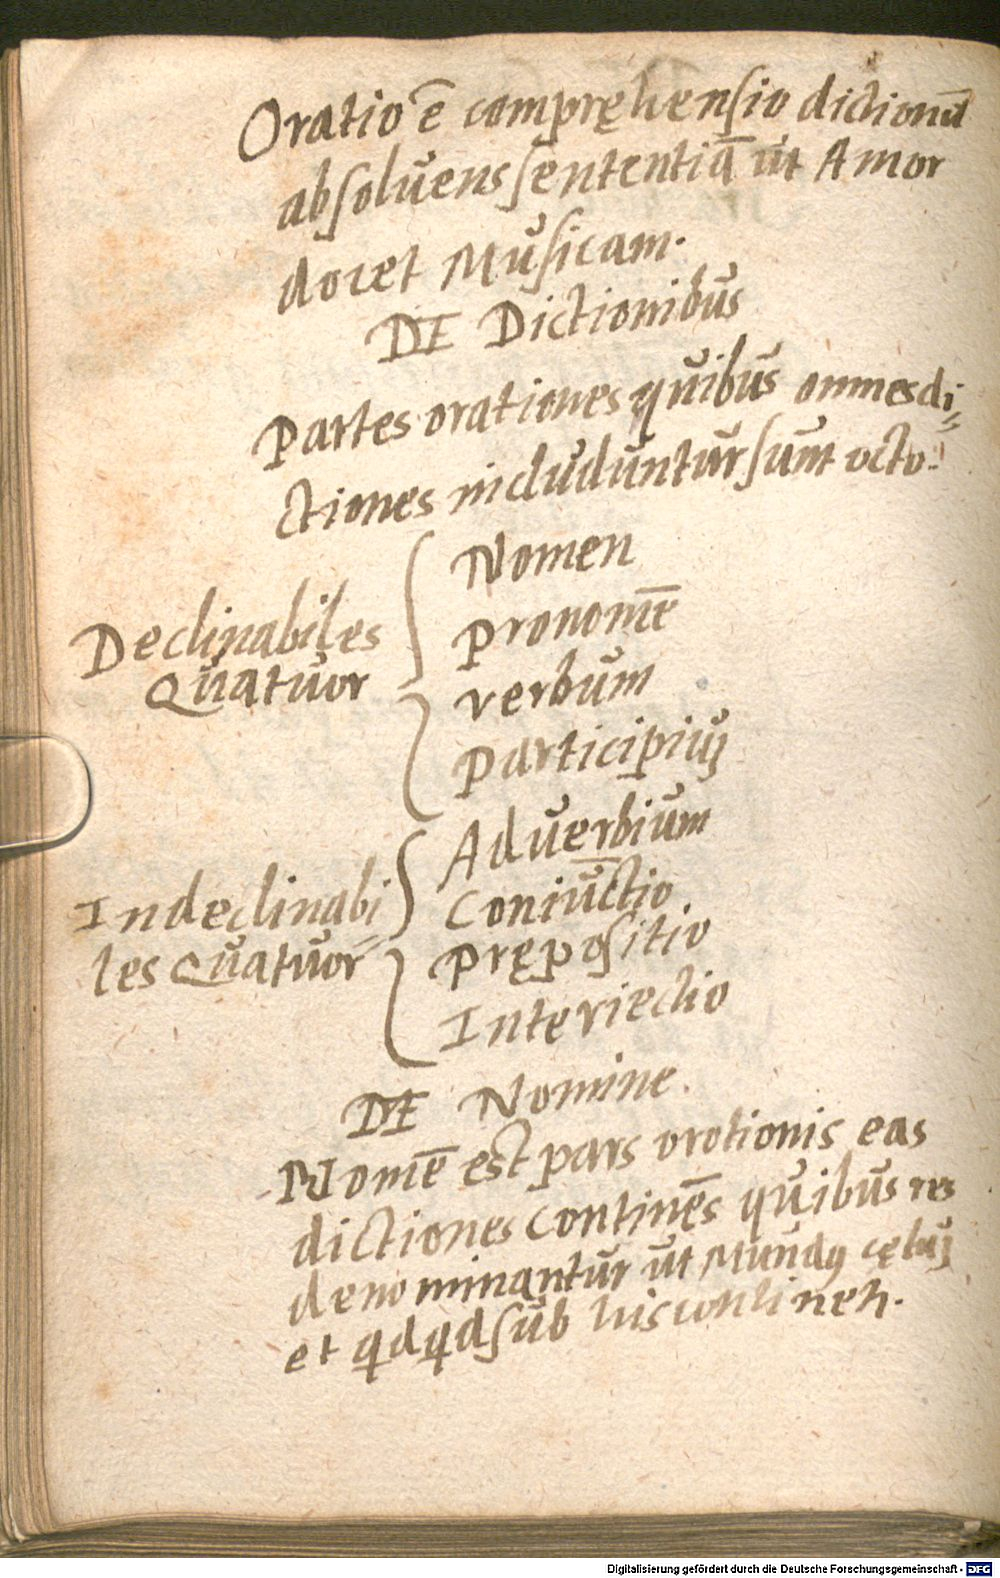 Oratio ē compręhensio dictionū
absoluens sententiā ut Amor
docet Musicam.
DE Dictionibus
Partes orationes quibus omnes di⸗
ctiones includuntur sunt octo.
Nomen
Pronomē
Declinabiles
Quatuor
verbum
Participiuȝ
Aduerbium
Indeclinabi⸗
Coniūctio
les Quatuor
Prępositio
Interiectio
DE Nomine.
Nomē est pars orationis eas
dictiones continēs quibus res
denominantur ut Mundꝯ cęluȝ
et qdqd sub his continetr.
Digitalisierung gefördert durch die Deutsche Forschungsgemeinschaft - DFG